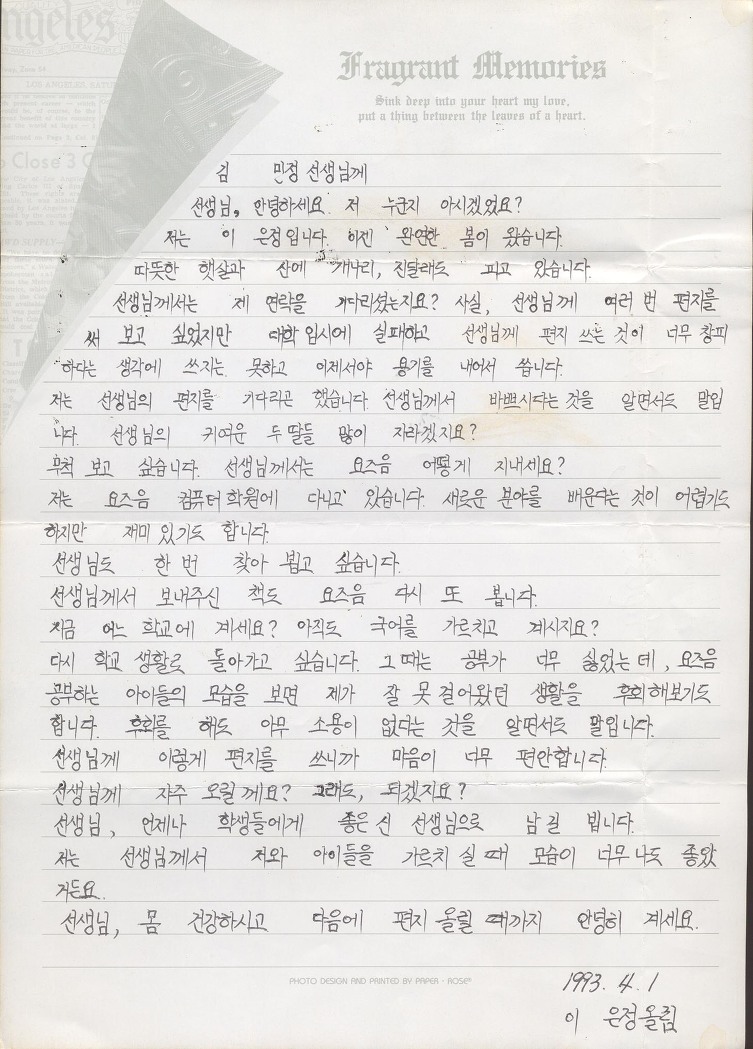 ngeles
LOS ANGELES, SATU
Close 3 C
Fragrant Memories
Sink deep into your heart my love,
put a thing between the leaves of a heart.
김 민정 선생님께
선생님, 안녕하세요. 저 누군지 아시겠었요?
저는 이 은정입니다. 이젠 완연한 봄이 왔습니다.
따뜻한 햇살과 산에 개나리, 진달래도 피고 있습니다.
선생님께서는 제 연락을 기다리셨는지요? 사실, 선생님께 여러 번 편지를
써 보고 싶었지만 대학 입시에 실패하고 선생님께 편지 쓰는 것이 너무 창피
하다는 생각에 쓰지는 못하고 이제서야 용기를 내어서 씁니다.
저는 선생님의 편지를 기다리곤 했습니다. 선생님께서 바쁘시다는 것을 알면서도 말입
니다. 선생님의 귀여운 두 딸들 많이 자라겠지요?
무척 보고 싶습니다. 선생님께서는 요즈음 어떻게 지내세요?
저는 요즈음 컴퓨터 학원에 다니고 있습니다. 새로운 분야를 배운다는 것이 어렵기도
하지만 재미 있기도 합니다.
선생님도 한 번 찾아 뵙고 싶습니다.
선생님께서 보내주신 책도 요즈음 다시 또 봅니다.
지금 어느 학교에 계세요? 아직도 국어를 가르치고 계시지요?
다시 학교 생활로 돌아가고 싶습니다. 그 때는 공부가 너무 싫었는데, 요즈음
공부하는 아이들의 모습을 보면 제가 잘 못 걸어왔던 생활을 후회해보기도
합니다. 후회를 해도 아무 소용이 없다는 것을 알면서도 말입니다.
선생님께 이렇게 편지를 쓰니까 마음이 너무 편안합니다.
선생님께 자주 오릴께요? 그래도, 되겠지요?
선생님, 언제나 학생들에게 좋은 신 선생님으로 남길 빕니다.
저는 선생님께서 저와 아이들을 가르치 실 때 모습이 너무나도 좋았
거든요.
선생님, 몸 건강하시고 다음에 편지 올릴 때까지 안녕히 계세요.
PHOTO DESIGN AND PRINTED BY PAPER - ROSE
1993. 4. 1
이 은정올림